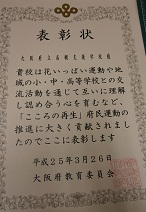 表彰状
大阪府立
貴校は花いっぱい運動や地
域の小・中・高等学校との交
流活動を通じて互いに理解
し認め合う心を育むなど、
「こころの再生」府民運動の
推進に大きく貢献されまし
たのでここに表彰します
平成25年3月26日
大阪府教育委員会